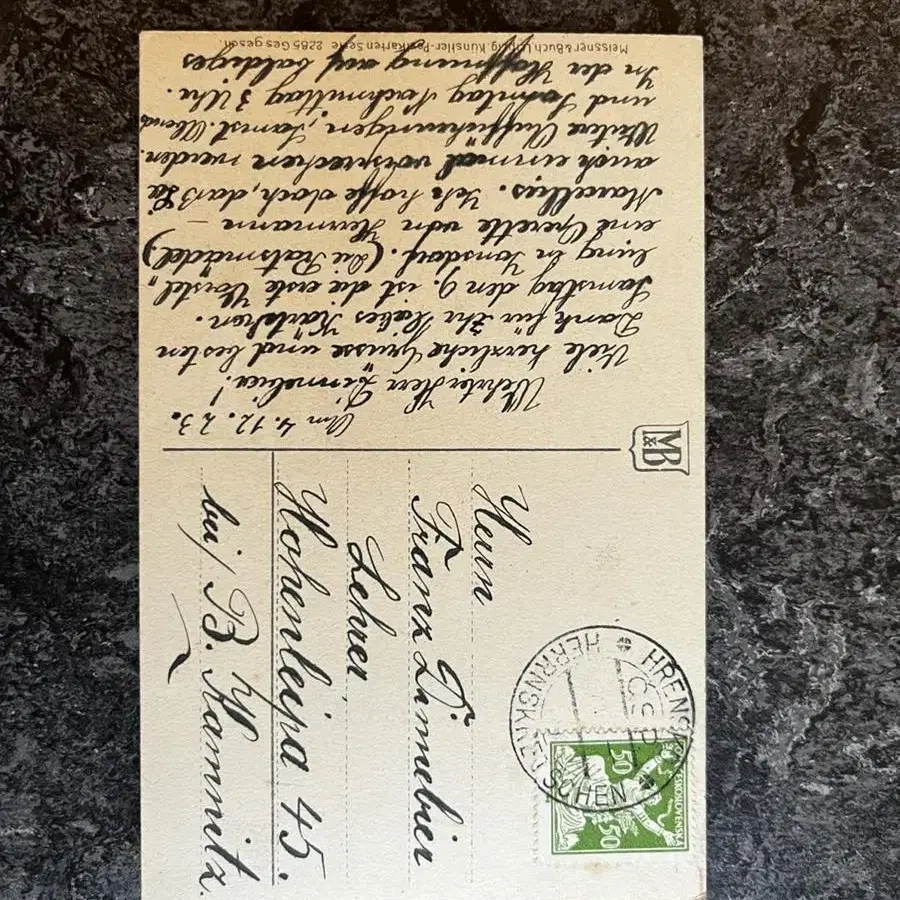 Am 4.12.23.
Werter Herr
Viele herzliche Grüsse und besten
Dank für Ihr liebes Kärtchen.
Samstag den 9. ist die erste Vorstel„
lung in Jonsdorf. (Die Ratsmädel)
eine Operette von Hermann –
Marcellus. Ich hoffe doch, daß Sie
auch einmal vorsprechen werden.
Weitere Aufführungen, Samst. Abend
und Sonntag Nachmittag 3 Uhr.
In der Hoffnung auf baldiges
Meissner & Buch, Leipzig, Künstler-Postkarten Serie 2285 Ges. gesch.
M&B
Herrn
Franz Dinnebier
Lehrer,
Hohenleipa 45.
bei/ B. Kamnitz.
HRENSKO
HERRNSKRETSCHEN
ČSP
50 50
ČESKOSLOVENSKÁ